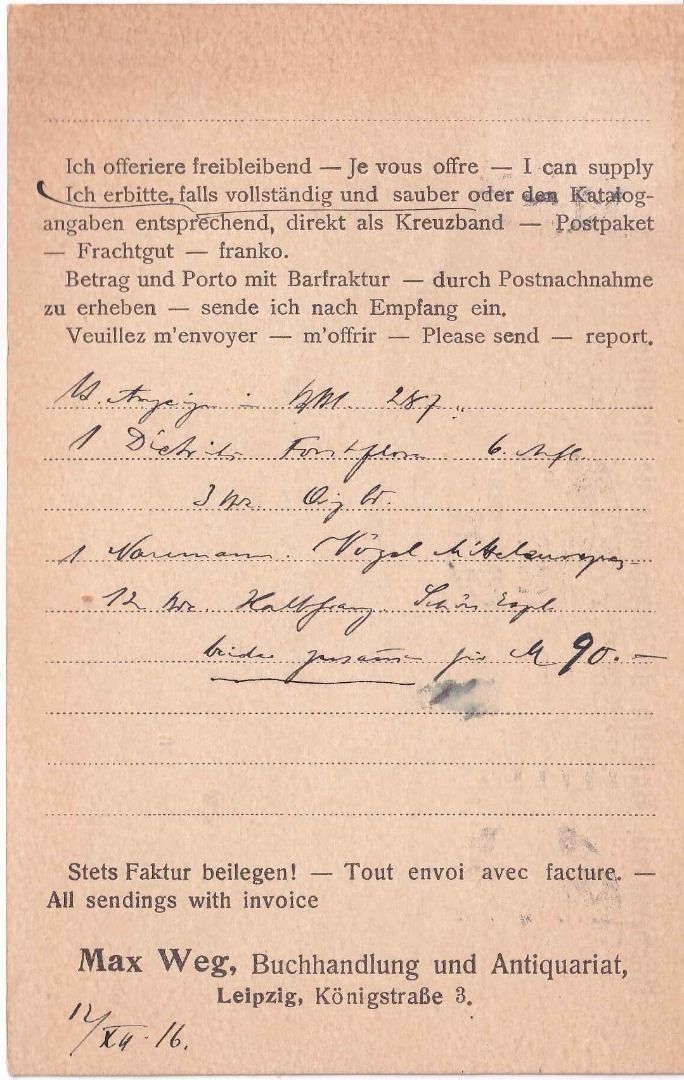 Ich offeriere freibleibend — Je vous offre — I can supply
Ich erbitte, falls vollständig und sauber oder den Katalog-
angaben entsprechend, direkt als Kreuzband — Postpaket
— Frachtgut — franko.
Betrag und Porto mit Barfraktur — durch Postnachnahme
zu erheben — sende ich nach Empfang ein.
Veuillez m'envoyer — m'offrir — Please send — report.
Anzeige 287
1 Dietrich Forstflora 6. Aufl.
3 Bde.
1 Naumann. Vögel Mitteleuropas
12 Bde. Halbfranz. Schön Expl.
beide zusammen für M 90.—
Stets Faktur beilegen! — Tout envoi avec facture. —
All sendings with invoice
Max Weg, Buchhandlung und Antiquariat,
Leipzig, Königstraße 3.
12/XII. 16.